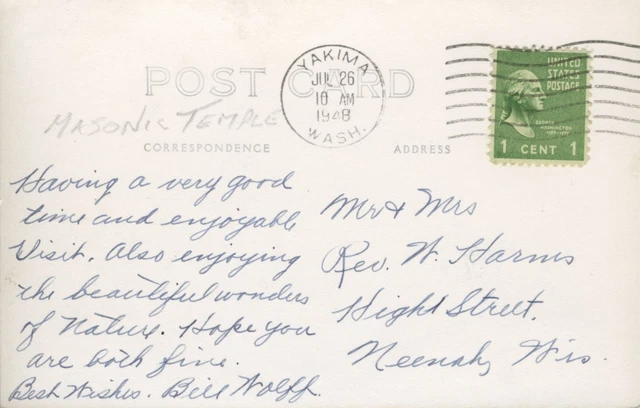 POST CARD
YAKIMA
JUL 26
10 AM
1948
WASH.
UNITED
STATES
POSTAGE
GEORGE
WASHINGTON
1 CENT 1
MASONIC TEMPLE
CORRESPONDENCE
ADDRESS
Having a very good
time and enjoyable
Visit. Also enjoying
the beautiful wonders
of Nature. Hope you
are both fine.
Best Wishes. Bill Wolff.
Mr & Mrs
Rev. W. Harms
High Street.
Neenah, Wis.